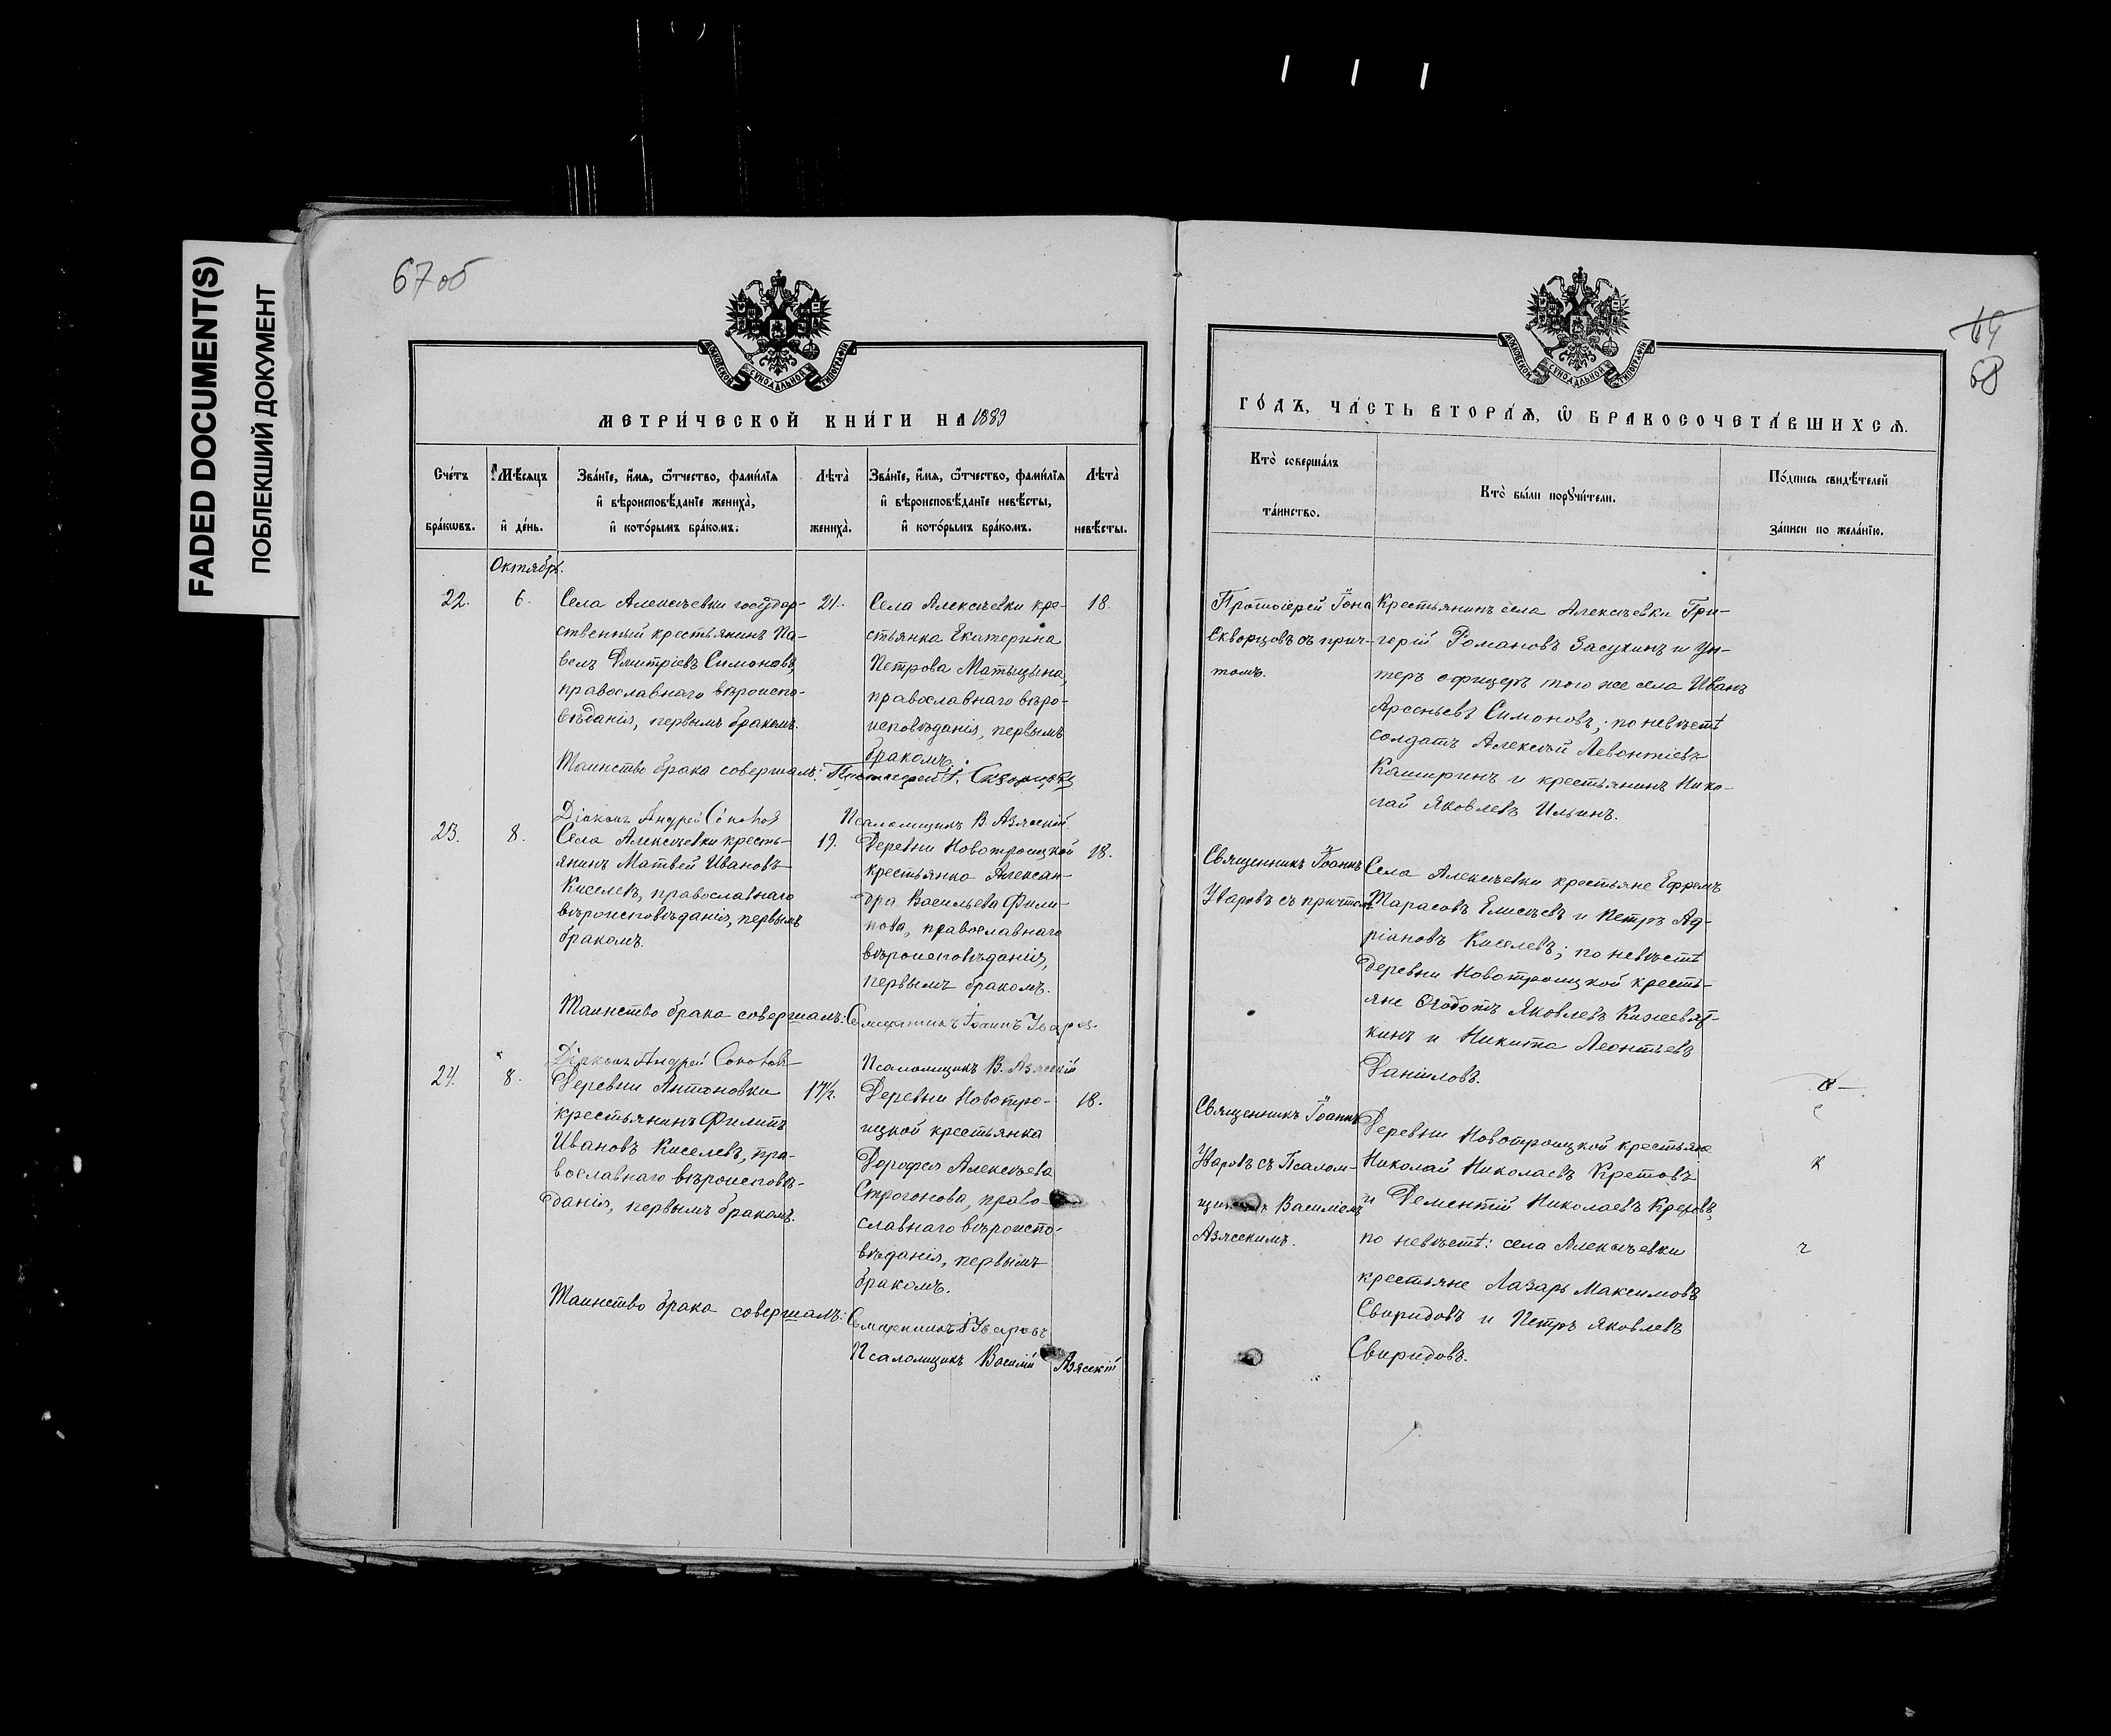 FADED DOCUMENT(S)
ПОБЛЕКШИЙ ДОКУМЕНТ
67 об
МОСКОВСКОЙ СѴНОДАЛЬНОЙ ТИПОГРАФІИ
МЕТРИ́ЧЕСКОЙ КНИ́ГИ НА 1889
Сче́тъ бра́кѡвъ.
Мѣ́сяцъ и҆ де́нь.
Зва́ніе, и҆́мѧ, ѻ҆́тчество, фами́лїѧ
и҆ вѣроисповѣ́даніе жениха̀,
и҆ кото́рымъ бра́комъ.
Лѣта̀ жениха̀.
Зва́ніе, и҆́мѧ, ѻ҆́тчество, фами́лїѧ
и҆ вѣроисповѣ́даніе невѣ́сты,
и҆ кото́рымъ бра́комъ.
Лѣта̀ невѣ́сты.
Октябрь.
22.
6.
Села Алексѣевки государ-
ственный крестьянинъ Па-
велъ Дмитріевъ Симоновъ,
православнаго вѣроиспо-
вѣданія, первымъ бракомъ.
21.
Села Алексѣевки кре-
стьянка Екатерина
Петрова Матыцына,
православнаго вѣро-
исповѣданія, первымъ
бракомъ.
18.
Таинство брака совершалъ: Протоіерей І. Скворцовъ
Діаконъ Андрей Соколов
Псаломщикъ В. Азясскій
23.
8.
Села Алексѣевки кресть-
янинъ Матвей Ивановъ
Киселевъ, православнаго
вѣроисповѣданія, первымъ
бракомъ.
19.
Деревни Новотроицкой
крестьянка Алексан-
дра Васильева Фили-
пова, православнаго
вѣроисповѣданія,
первымъ бракомъ.
18.
Таинство брака совершалъ: Священникъ Іоаннъ Уваров
Діаконъ Андрей Соколовъ
Псаломщикъ В. Азясскій
24.
8.
Деревни Антоновки
крестьянинъ Филипъ
Ивановъ Киселевъ, пра-
вославнаго вѣроисповѣ-
данія, первымъ бракомъ.
17½.
Деревни Новотро-
ицкой крестьянка
Дорофея Алексѣева
Строгонова, право-
славнаго вѣроиспо-
вѣданія, первымъ
бракомъ.
18.
Таинство брака совершалъ: Священникъ І Уваровъ
Псаломщикъ Василій Азясскій
69
68
МОСКОВСКОЙ СѴНОДАЛЬНОЙ ТИПОГРАФІИ
ГО́ДЪ, ЧА́СТЬ ВТОРА́Ѧ, Ѽ БРАКОСОЧЕТА́ВШИХСѦ.
Кто̀ соверша́лъ
та́инство.
Кто̀ бы́ли порꙋчи́тели.
По́дпись свидѣ́телей
за́писи по жела́нію.
Протоіерей Іона
Скворцовъ съ прич-
томъ.
Крестьянинъ села Алексѣевки Гри-
горій Романовъ Засухинъ и Ун-
теръ офицеръ того же села Иванъ
Арсеньевъ Симоновъ; по невѣстѣ
солдатъ Алексѣй Левонтіевъ
Каширинъ и крестьянинъ Нико-
лай Яковлевъ Ильинъ.
Священникъ Іоаннъ
Уваровъ съ причтомъ
Села Алексѣевки крестьяне Ефремъ
Тарасовъ Елисѣевъ и Петръ Ад-
ріановъ Киселевъ; по невѣстѣ
деревни Новотроицкой кресть-
яне Ѳедотъ Яковлевъ
и Никита Леонтьевъ
Даниловъ.
Священникъ Іоаннъ
Уваровъ съ Псалом-
Василіемъ
Азясскимъ.
Деревни Новотроицкой крестьяне
Николай Николаевъ Кретовъ
и Дементій Николаевъ Кретовъ,
по невѣстѣ: села Алексѣевки
крестьяне Лазарь Максимовъ
Свиридовъ и Петръ Яковлевъ
Свиридовъ.